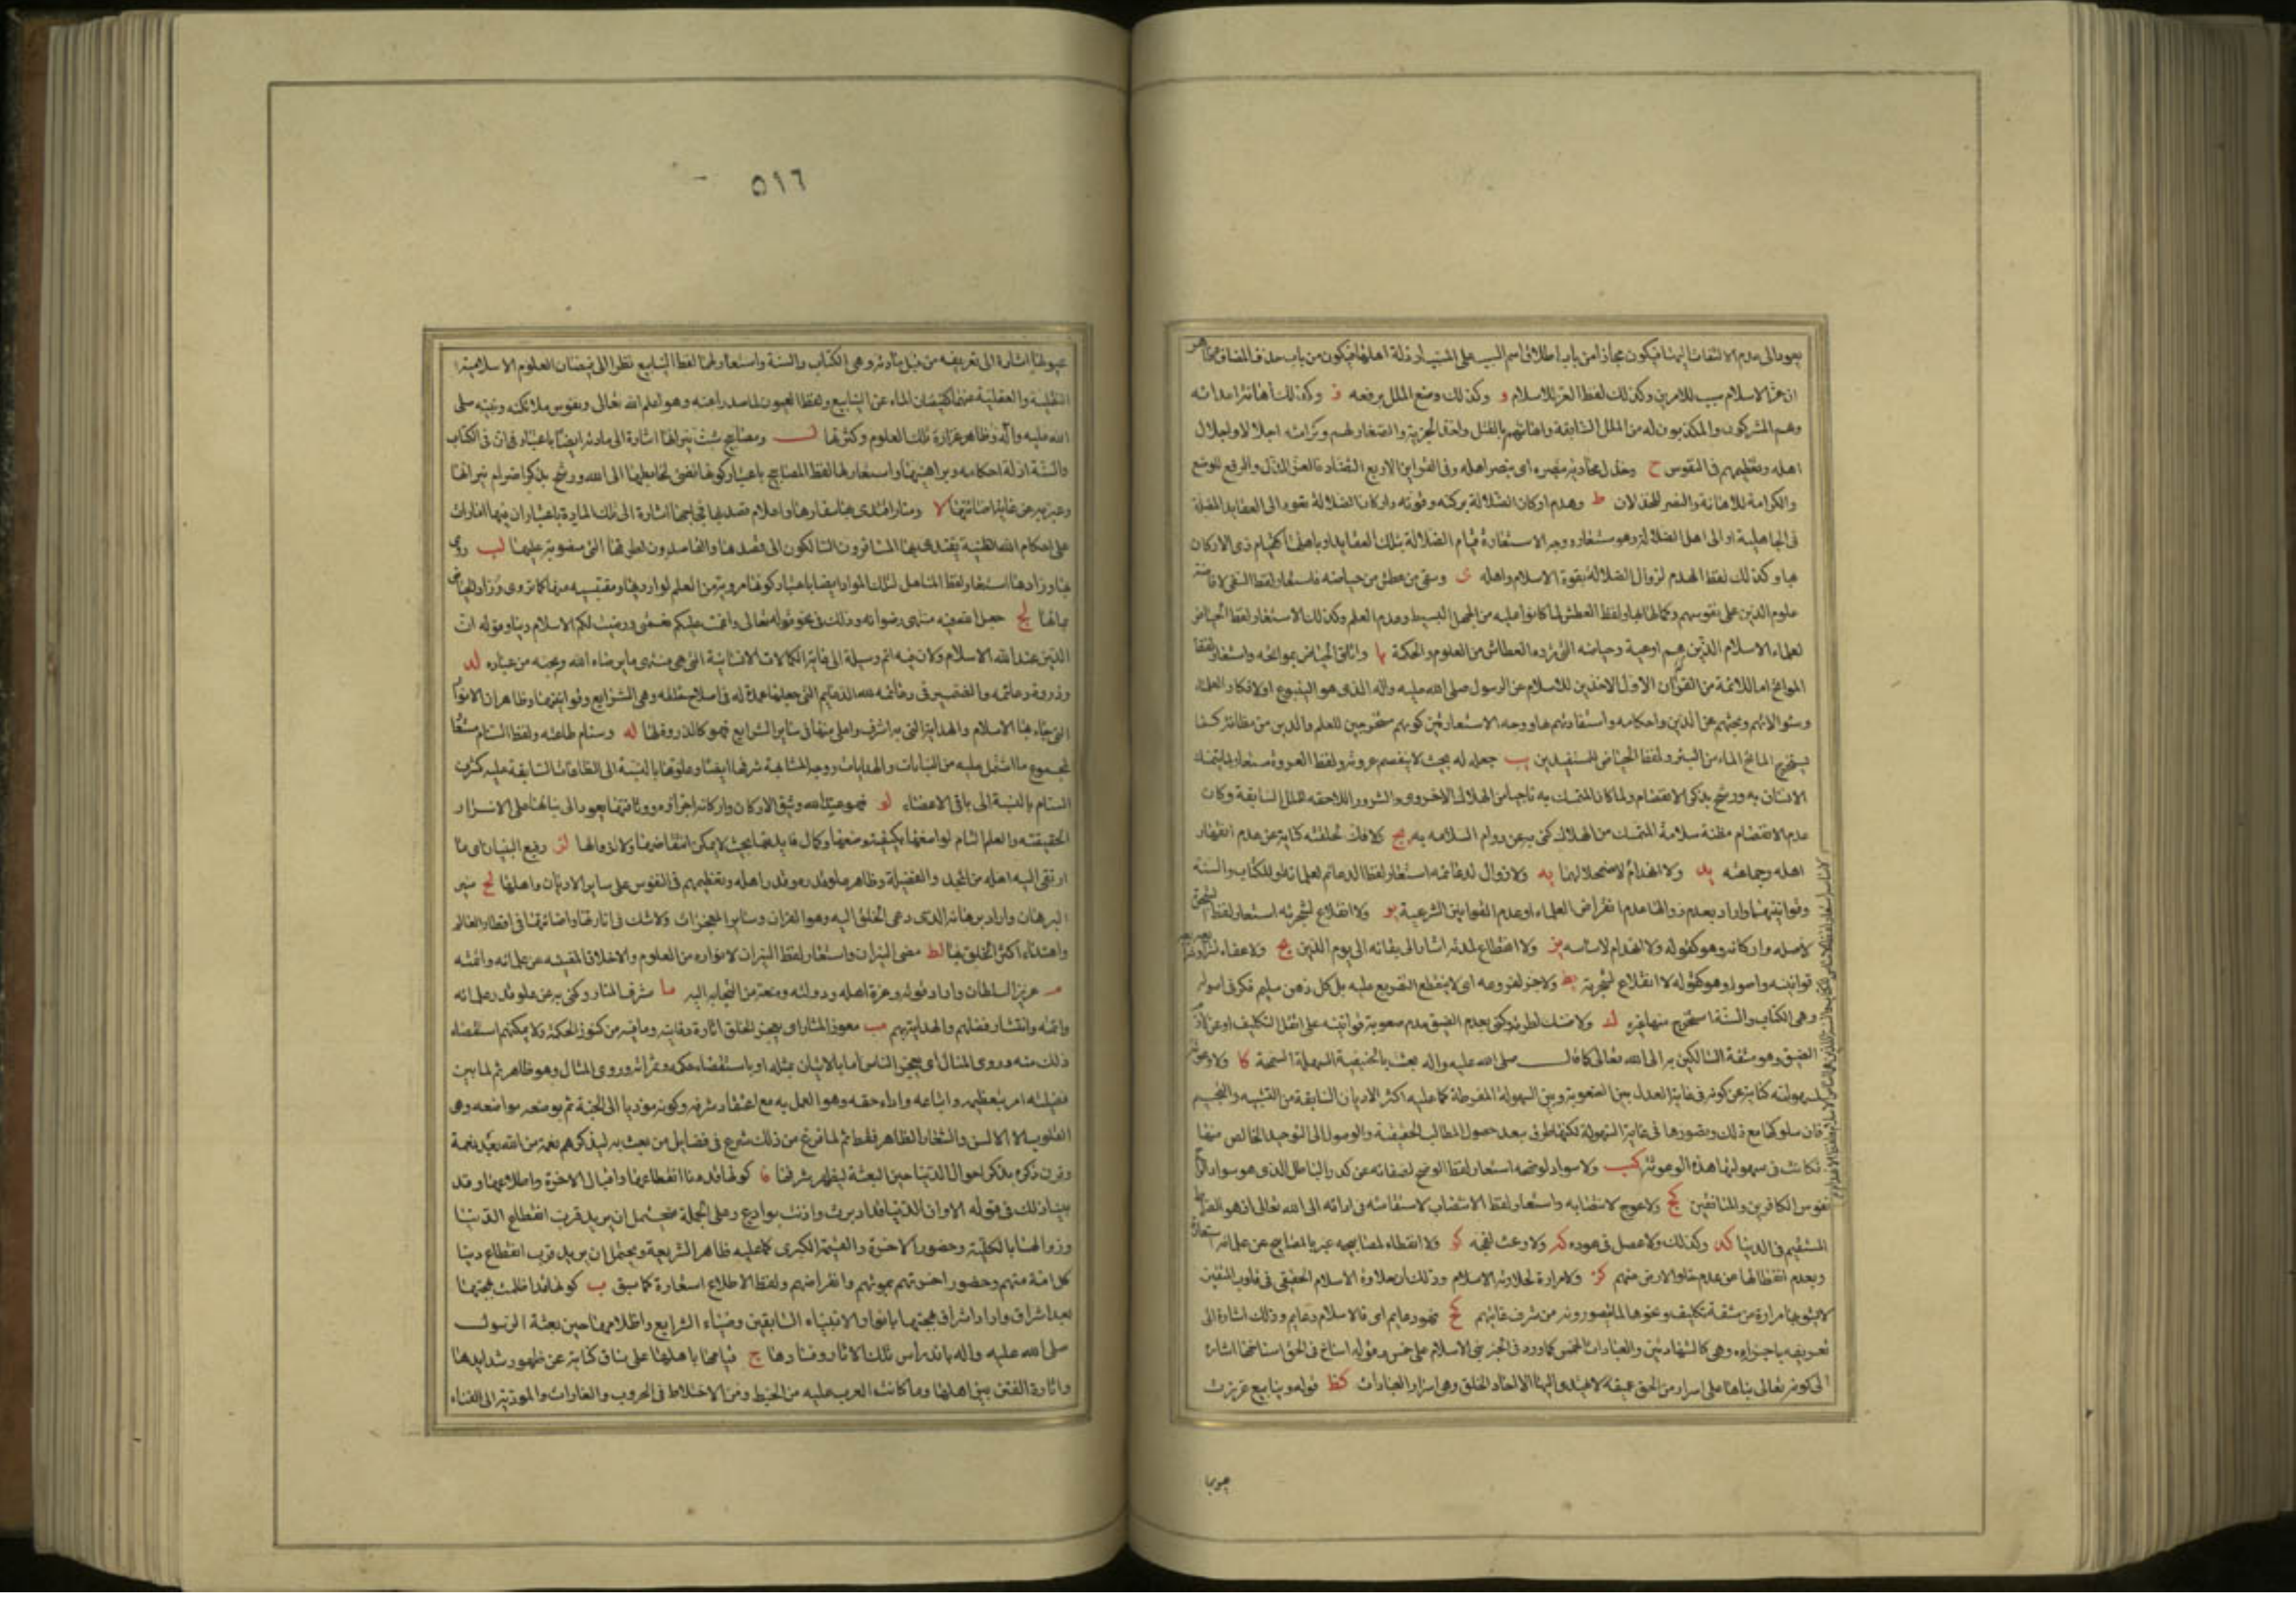 يعود الى عدم الالتفات اليها فيكون مجازا من باب اطلاق اسم السبب على المسبب او ذلة اهلها فيكون من باب حذف المضاف
ان عز الاسلام سبب للامرين وكذلك لفظ العز للاسلام و وكذلك وضع الملل برفعه ز وكذلك اهانة اعدائه
وهم المشركون والمكذبون له من الملل السابقة واهانتهم بالقتل واخذ الجزية والصغار لهم وكرامته اجلالا واجلال
اهله وتعظيمهم في النفوس ح وخذل محاديه بنصره اى بنصر اهله وفي القراين الاربع التضاد فالعز للذل والرفع للوضع
والكرامة للاهانة والنصر للخذلان ط وهدم اركان الضلالة بركنه وقوته واركان الضلالة تعود الى العقايد المضلة
في الجاهلية او الى اهل الضلالة وهو مستعار ووجه الاستعارة قيام الضلالة بتلك العقايد او باهلها كقيام ذى الاركان
بها وكذلك لفظ الهدم لزوال الضلالة بقوة الاسلام واهله ى وسقى من عطش من حياضه فاستعار لفظ السقى لافاضة
علوم الدين على نفوسهم وكمالها بها ولفظ العطش لما كانوا عليه من الجهل البسيط وعدم العلم وكذلك الاستعارة لفظ الحياض
لعلماء الاسلام الذين هم اوعية وحياضه التى ترده العطاش من العلوم والحكمة يا واتاق الحياض بمواتحه واستعار لفظ
المواتح اما للائمة من القرن الاول الاخذين للاسلام عن الرسول صلى الله عليه واله الذى هو الينبوع او لافكار العلماء
وسؤالاتهم وبحثهم عن الدين واحكامه واستفادتهم بها ووجه الاستعارتين كونهم مستخرجين للعلم والدين من مظانه كما
يستخرج الماتح الماء من البئر ولفظ الحياض للمستفيدين يب جعله له بحيث لا ينفصم عروته ولفظ العروة مستعار لما يتمسك
الانسان به ورشح بذكر الانفصام ولما كان المتمسك به ناجيا من الهلاك الاخروى والشرور اللاحقة للملل السابقة وكان
عدم الانفصام مظنة سلامة المتمسك من الهلاك كنى به عن دوام السلامة به يج ولا فك لحلقته كناية عن عدم انقهار
اهله وجماعته يد ولا انهدام لاساسه يه ولا زوال لدعائمه استعار لفظ الدعائم لعلمائه او للكتاب والسنة
وقوانينهما واراد بعدم زوالها عدم انقراض العلماء او عدم القوانين الشرعية يو ولا انقلاع لشجرته استعار لفظ الشجرة
لاصله واركانه وهو كقوله ولا انهدام لاساسه يز ولا انقطاع لمدته اشار الى بقائه الى يوم الدين يح ولا عفاء لشرائعه
قوانينه واصوله وهو كقوله لا انقلاع لشجرته يط ولا جذ لفروعه اى لا ينقطع التفريع عليه بل كل ذهن سليم فكر في اصوله
وهى الكتاب والسنة استخرج منها غيره ك ولا ضنك لطرقه وكنى بعدم الضيق عدم صعوبة قوانينه على اهل التكليف
الضيق وهو مشقة السالكين به الى الله تعالى كما قال صلى الله عليه واله بعثت بالحنيفية السهلة السمحة كا ولا وعوثة
لسهولته كناية عن كونه في غاية العدل بين الصعوبة وبين السهولة المفرطة كما عليه اكثر الاديان السابقة من التشبيه والتجسيم
فان سلوكها مع ذلك وتصورها في غاية السهولة لكنها طرق يبعد حصول المطالب الحقيقية والوصول الى التوحيد الخالص منها
فكانت في سهولتها هذه الوعوثة كب ولا سواد لوضحه استعار لفظ الوضح لصفائه عن كدر الباطل الذى هو سواد الواح
نفوس الكافرين والمنافقين كج ولا عوج لانتصابه واستعار لفظ الانتصاب لاستقامته في ادائه الى الله تعالى اذ هو الصراط
المستقيم في الدنيا كد وكذلك ولا عصل في عوده كه ولا وعث لفجه كو ولا انطفاء لمصابيحه عبر بالمصابيح عن علمائه استعارة
وبعدم انطفائها عن عدم خلو الارض منهم كز ولا مرارة لحلاوته الاسلام وذلك ان حلاوة الاسلام الحقيقى في قلوب المتقين
لا يشوبها مرارة من مشقة تكليف ونحوها لما يتصورونه من شرف غايتهم كح فهو دعايم اى فالاسلام دعايم وذلك اشارة الى
تعريفه باجزائه وهى كالشهادتين والعبادات الخمس كما ورد في الخبر بنى الاسلام على خمس وقوله اساخ في الحق اسناخها اشارة
الى كونه تعالى بناها على اسرار من الحق عميقة لا يهتدى اليها الا احاد الخلق وهى اسرار العبادات كط قوله وينابيع غزرت
عيونها
٥١٦
عيونها اشارة الى تعريفه من قبل مادته وهى الكتاب والسنة واستعار لهما لفظ الينابيع نظرا الى فيضان العلوم الاسلامية
النقلية والعقلية عنهما كفيضان الماء عن الينابيع ولفظ العيون لما صدرا عنه وهو علم الله تعالى ونفوس ملائكته ونبيه صلى
الله عليه واله وظاهر غزارة تلك العلوم وكثرتها ل ومصابيح شبت نيرانها اشارة الى مادته ايضا باعتبار ان في الكتاب
والسنة ادلة احكامه وبراهينها واستعار لها لفظ المصابيح باعتبار كونها تضىء لخابطيها الى الله ورشح بذكر اضرام نيرانها
وعبر به عن غاية اضائتها لا ومنار اقتدى بها سفارها واعلام قصد بها فجاجها اشارة الى تلك المادة باعتبار ان فيها امارات
على احكام الله الظنية يقتدى بها المسافرون السالكون الى قصدها والقاصدون لطرقها التى منصوبة عليها لب
بها ورادها استعار لفظ المناهل لتلك المواد ايضا باعتبار كونها مروية من العلم لواردها ومقتبسيه منها كما تروى وراد الحياض
بمائها لج جعل الله فيه منتهى رضوانه وذلك في نحو قوله تعالى واتممت عليكم نعمتى ورضيت لكم الاسلام دينا وقوله ان
الدين عند الله الاسلام ولان فيه اتم وسيلة الى غاية الكمالات الانسانية التى هى منتهى ما يرضاه الله ويحبه من عباده لد
وذروة دعائمه والضمير في دعائمه لله الدعايم التى جعلها عمدة له في اصلاح خلقه وهى الشرايع وقوانينها وظاهر ان الانوار
التى جاء بها الاسلام والهداية التى به اشرف واعلى منها في ساير الشرايع فهو كالذروة لها له وسنام طاعته ولفظ السنام مستعار
لمجموع ما اشتمل عليه من البيانات والهدايات ووجه المشابهة شرفها ايضا وعلوها بالنسبة الى الطاعات السابقة عليه كشرف
السنام بالنسبة الى باقى الاعضاء لو فهو عند الله وثيق الاركان واركانه اجزاؤه ووثاقتها يعود الى بنائها على الاسرار
الحقيقية والعلم التام لواضعها بكيفية وضعها وكمال فايدتها بحيث لا يمكن انتقاضها ولا زوالها لز رفيع البنيان اى ما
ارتقى اليه اهله من المجد والفضيلة وظاهر علو قدره وقدر اهله وتعظيمهم في النفوس على ساير الاديان واهلها لح منير
البرهان واراد برهانه الذى دعى الخلق اليه وهو القران وساير المعجزات ولا شك في انارتها واضائتها في اقطار العالم
واهتداء اكثر الخلق بها لط مضىء النيران واستعار لفظ النيران لانواره من العلوم والاخلاق المقتبسة عن علمائه وائمته
م عزيز السلطان واراد قوته وعزة اهله ودولته ومنعة من التجا به اليه ما مشرف المنار وكنى به عن علو قدر علمائه
وائمته وانتشار فضلهم والهداية بهم مب معوذ المثار اى يعجز الخلق اثارة دفاينه وما فيه من كنوز الحكمة ولا يمكنهم استقصاء
ذلك منه وروى المنال اى يعجز الناس اما بالاتيان بمثله او باستقصاء حكمه وثمراته وروى المثال وهو ظاهر ثم لما بين
فضيلته امر بتعظيمه واتباعه واداء حقه وهو العمل به مع اعتقاد شرفه وكونه مؤديا الى الجنة ثم بوضعه مواضعه وهى
القلوب لا الالسن والشعار الظاهر فقط ثم لما فرغ من ذلك شرع في فضايل من بعث به ليذكرهم نعمة من الله بعد نعمة
وقرن ذكره بذكر احوال الدنيا حين البعثة ليظهر شرفها ا كونها قد دنا انقطاعها واقبال الاخرة واطلاعها وقد
بينا ذلك في قوله الا وان الدنيا قد ادبرت واذنت بوداع وعلى الجملة فيحتمل ان يريد قرب انقطاع الدنيا
وزوالها بالكلية وحضور الاخرة والقيمة الكبرى كما عليه ظاهر الشريعة ويحتمل ان يريد قرب انقطاع دنيا
كل امة منهم وحضور اخرتهم بموتهم وانقراضهم ولفظ الاطلاع استعارة كما سبق ب كونها قد اظلمت بهجتها
بعد اشراق واراد اشراق بهجتها بانوار الانبياء السابقين وضياء الشرايع واظلامها حين بعثة الرسول
صلى الله عليه واله باندراس تلك الاثار وفسادها ج قيامها باهلها على ساق كناية عن ظهور شدايدها
واثارة الفتن بين اهلها وما كانت العرب عليه من الخبط ومن الاختلاط في الحروب والغارات والمؤدية الى الفناء